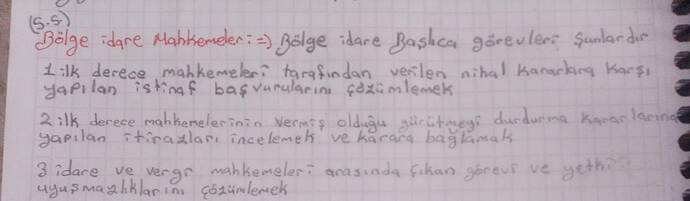 (S.S)
Bölge idare Mahkemeleri => Bölge idare Başlıca görevleri Şunlardır
1 ilk derece mahkemeleri tarafından verilen nihai kararlara karşı
yapılan istinaf başvurularını çözümlemek
2 ilk derece mahkemelerinin vermiş olduğu yürütmeyi durdurma kararlarına
yapılan itirazları incelemek ve karara bağlamak
3 idare ve vergi mahkemeleri arasında çıkan görevi ve yetki
uyuşmazlıklarını çözümlemek